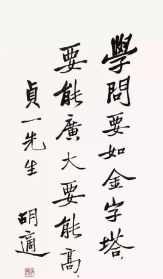 學問要如金字塔
要能廣大要能高
貞一先生
胡適